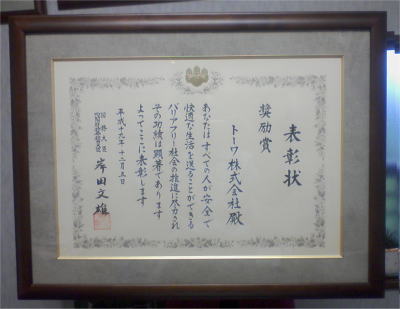 表彰状
奨励賞
トーワ株式会社殿
あなたは すべての人が安全で
快適な生活を送ることができる
バリアフリー社会の推進に尽力され
その功績は顕著であります
よってここに表彰します
平成十九年十二月三日
岸田文雄